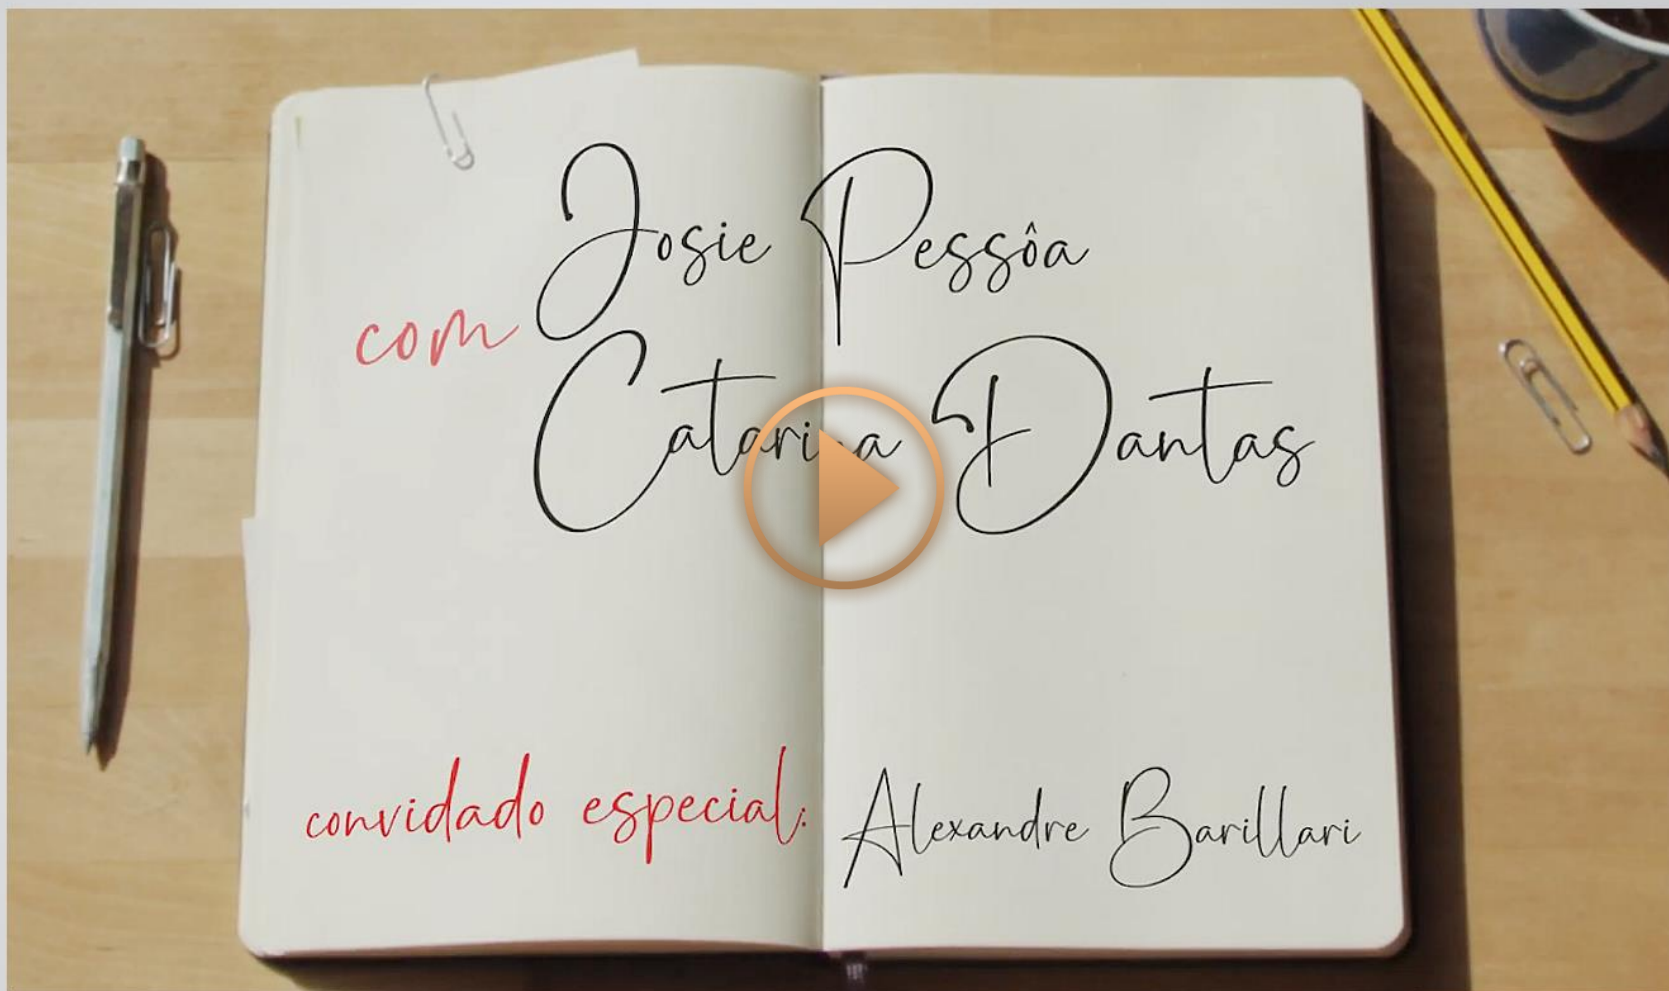 Josie Pessôa
com
Catarina Dantas
convidado especial: Alexandre Barillari